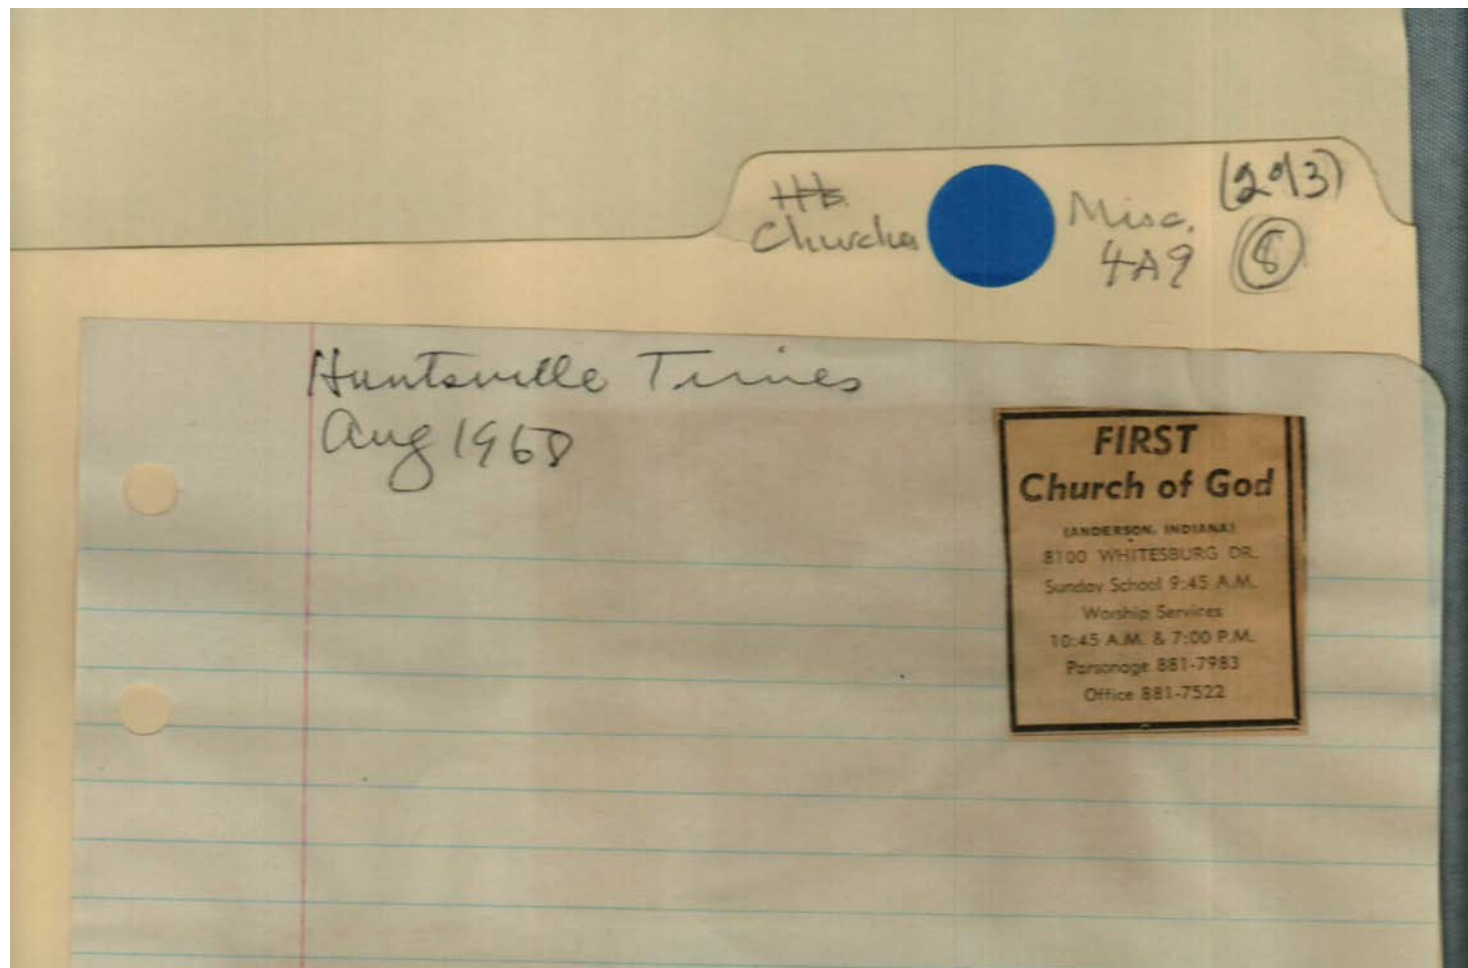 Churches
Misc.
4A9
(2 of 3)
8
Huntsville Times
Aug 1968
FIRST
Church of God
(ANDERSON, INDIANA)
8100 WHITESBURG DR.
Sunday School 9:45 A.M.
Worship Services
10:45 A.M. & 7:00 P.M.
Parsonage 881-7983
Office 881-7522